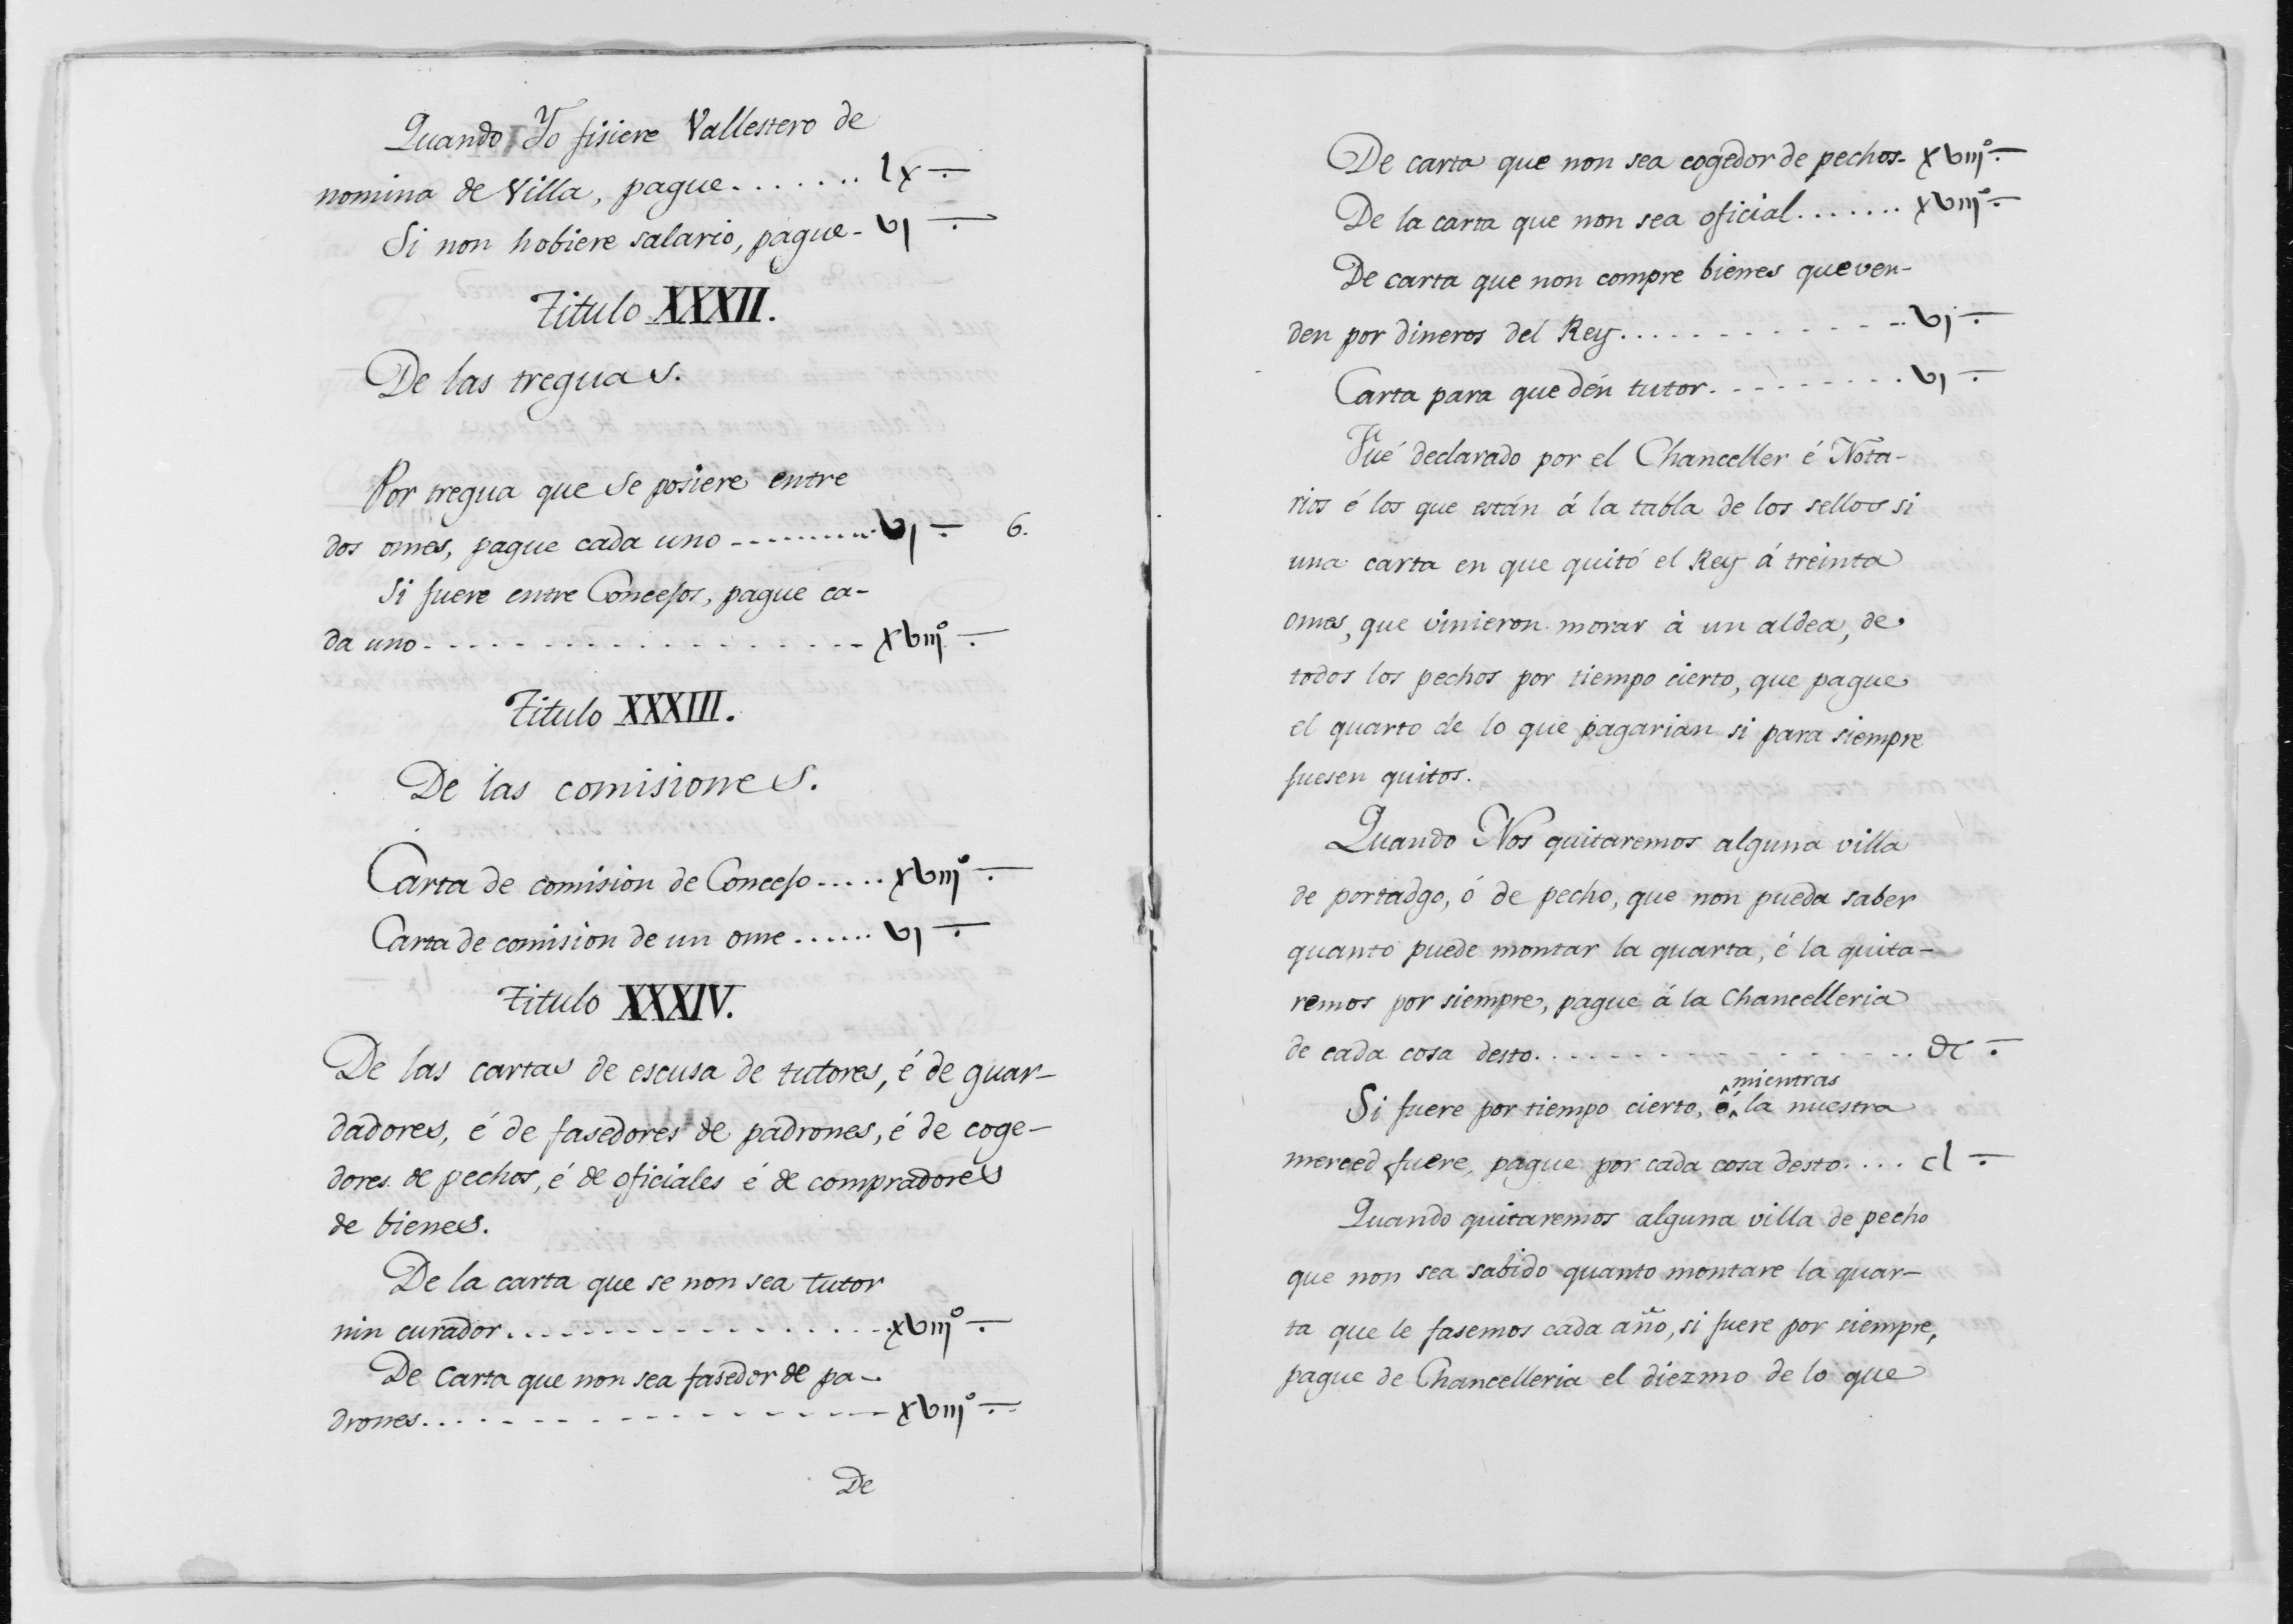 Quando Yo fisiere Vallestero de
nomina de Villa, pague....... lx
Si non hobiere salario, pague- vj
Titulo XXXII.
De las treguas.
Por tregua que se posiere entre
dos omes, pague cada uno ---------- vj 6.
Si fuere entre Concejos, pague ca-
da uno - - - - - - - - - - - - - - - - xviijº
Titulo XXXIII.
De las comisiones.
Carta de comision de Concejo..... xviijº
Carta de comision de un ome...... vj
Titulo XXXIV.
De las cartas de escusa de tutores, é de guar-
dadores, é de fasedores de padrones, é de coge-
dores de pechos, é de oficiales é de compradores
de bienes.
De la carta que se non sea tutor
nin curador. . . . - - - - - - - - - - - - xviijº
De carta que non sea fasedor de pa-
drones. . . . - - - - - - - - - - - - - - xviijº
De
De carta que non sea cogedor de pechos- xviijº
De la carta que non sea oficial....... xviijº
De carta que non compre bienes que ven-
den por dineros del Rey. . . . . - - - - - - - vj
Carta para que dén tutor. - - - - - - - . . vj
Fué declarado por el Chanceller é Nota-
rios é los que están á la tabla de los sellos si
una carta en que quitó el Rey á treinta
omes, que vinieron morar à un aldea, de
todos los pechos por tiempo cierto, que pague
el quarto de lo que pagarian si para siempre
fuesen quitos.
Quando Nos quitaremos alguna villa
de portadgo, ó de pecho, que non pueda saber
quanto puede montar la quarta, é la quita-
remos por siempre, pague á la Chancelleria
de cada cosa desto. . . . - - - - - - - - - . . dc
mientras
Si fuere por tiempo cierto, é la nuestra
merced fuere, pague por cada cosa desto.... cl
Quando quitaremos alguna villa de pecho
que non sea sabido quanto montare la quar-
ta que le fasemos cada año, si fuere por siempre,
pague de Chancelleria el diezmo de lo que